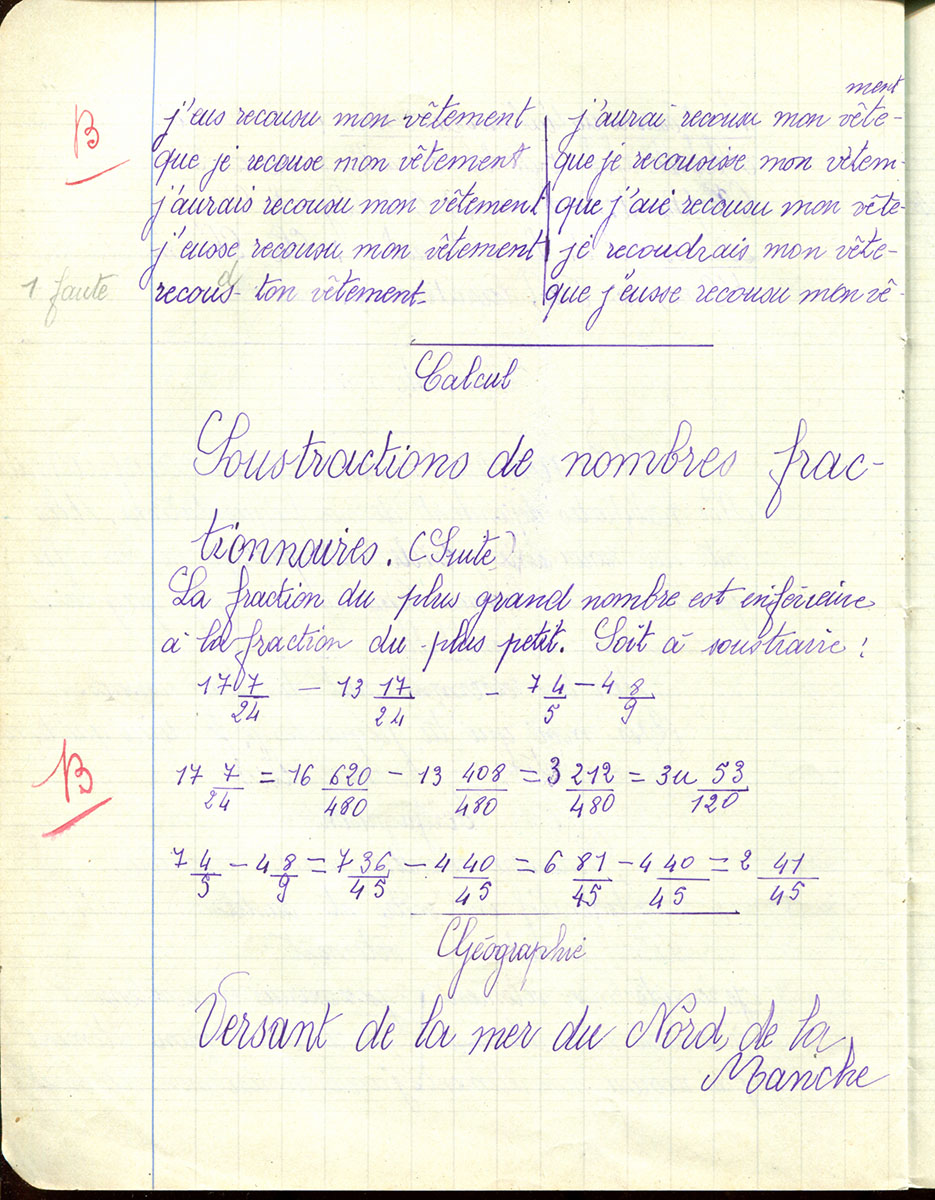 ment
B
j'eus recousu mon vêtement j'aurai recousu mon vête-
que je recouse mon vêtement que je recousisse mon vêtem-
j'aurais recousu mon vêtement que j'aie recousu mon vête-
j'eusse recousu mon vêtement je recoudrais mon vête-
d
1 faute recous- ton vêtement- que j'eusse recousu mon vê-
Calcul
Soustractions de nombres frac-
tionnaires. (Suite)
La fraction du plus grand nombre est inférieure
à la fraction du plus petit. Soit à soustraire :
17 7/24 - 13 17/24 - 7 4/5 - 4 8/9
B
17 7/24 = 16 620/480 - 13 408/480 = 3 212/480 = 3 u 53/120
7 4/5 - 4 8/9 = 7 36/45 - 4 40/45 = 6 81/45 - 4 40/45 = 2 41/45
Géographie
Versant de la mer du Nord, de la
Manche